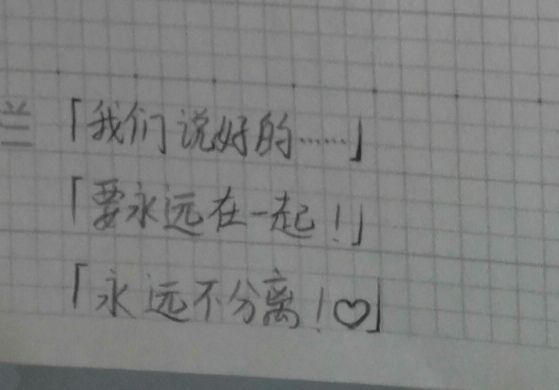 兰「我们说好的……」
「要永远在一起!」
「永远不分离!♡」